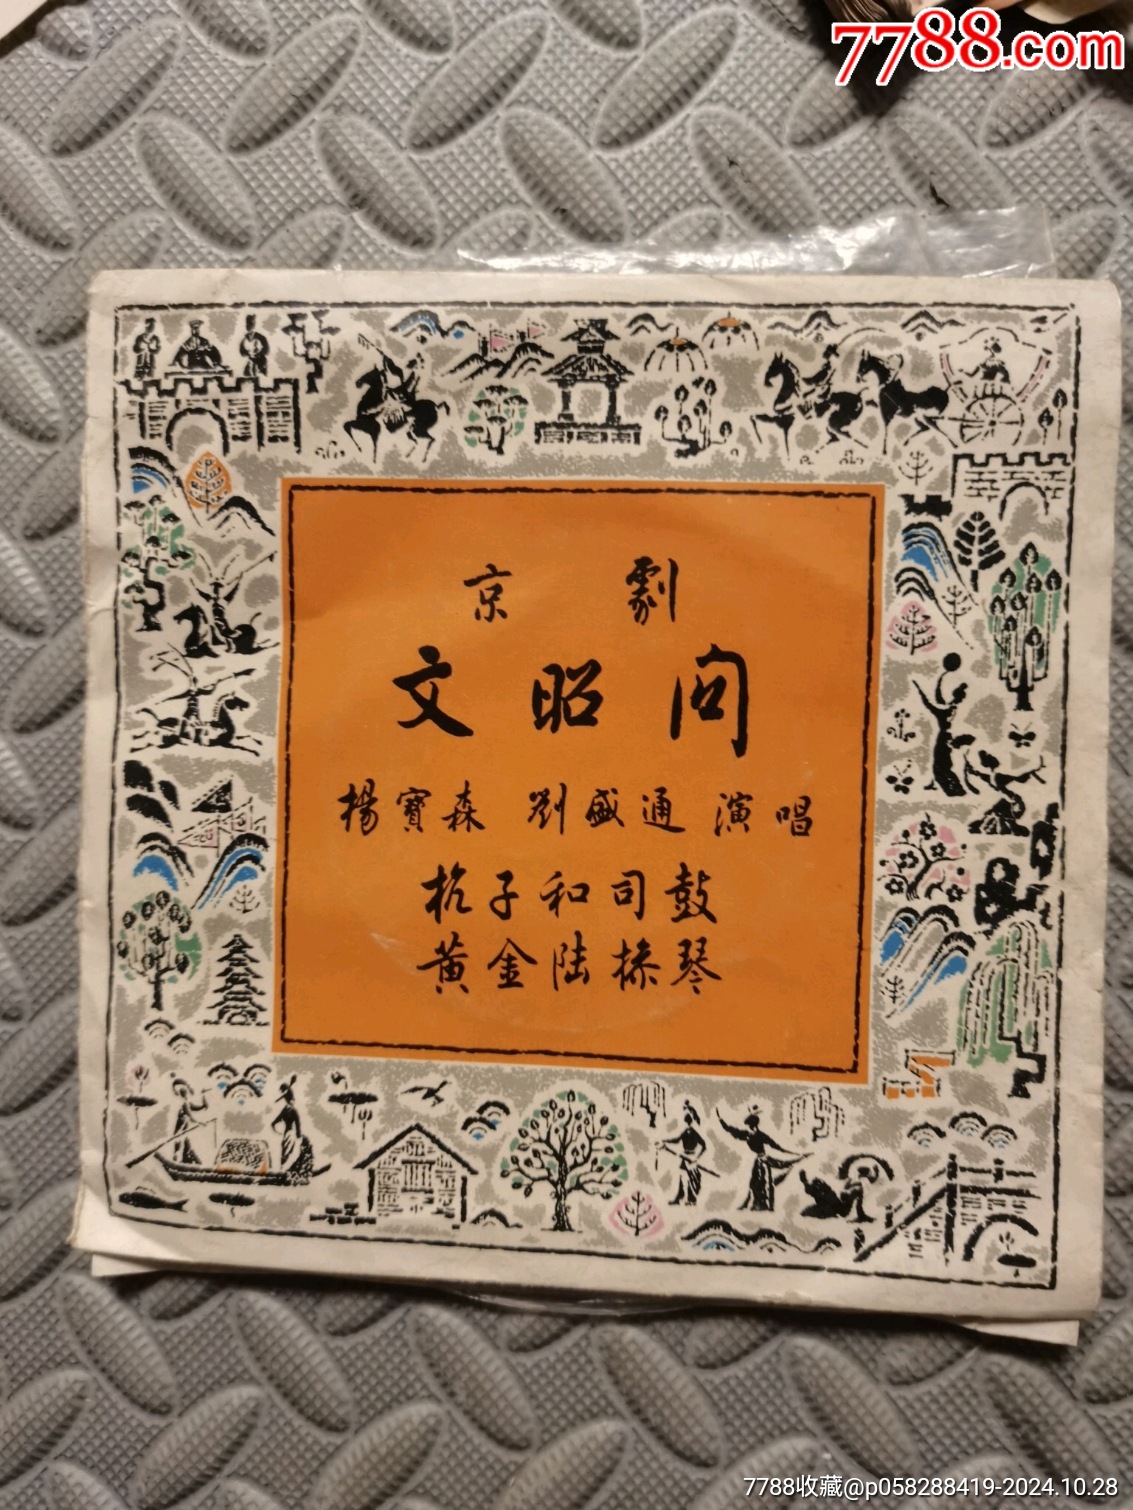 7788.com
京劇
文昭関
楊寶森 劉盛通 演唱
杭子和司鼓
黄金陆操琴
7788收藏@p058288419-2024.10.28